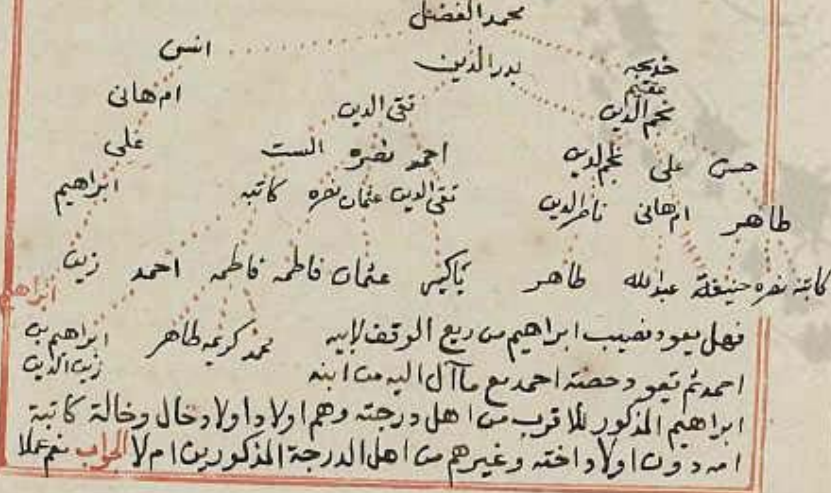 محمد الفضل
انس بدر الدين خديجه
عقيم
ام هانى تقى الدين نجم الدين
على الست نصره احمد نجم الدين على حسن
ابراهيم كاتبه نصره عثمان تقى الدين ناصر الدين ام هانى طاهر
زين احمد فاطمه فاطمه عثمان باكير طاهر عبدالله حنيفة نصره كاتبة
ابراهيم
فهل يعود نصيب ابراهيم من ريع الوقف لابيه محمد كريمه طاهر ابراهيم بن
زين الدين
احمد ثم تعود حصته احمد مع ما آل اليه من ابنه
ابراهيم المذكور للاقرب من اهل درجته وهم اولاد اولاد خال وخالة كاتبة
امه دون اولاد اخته وغيرهم من اهل الدرجة المذكورين ام لا الجواب نعم عملا